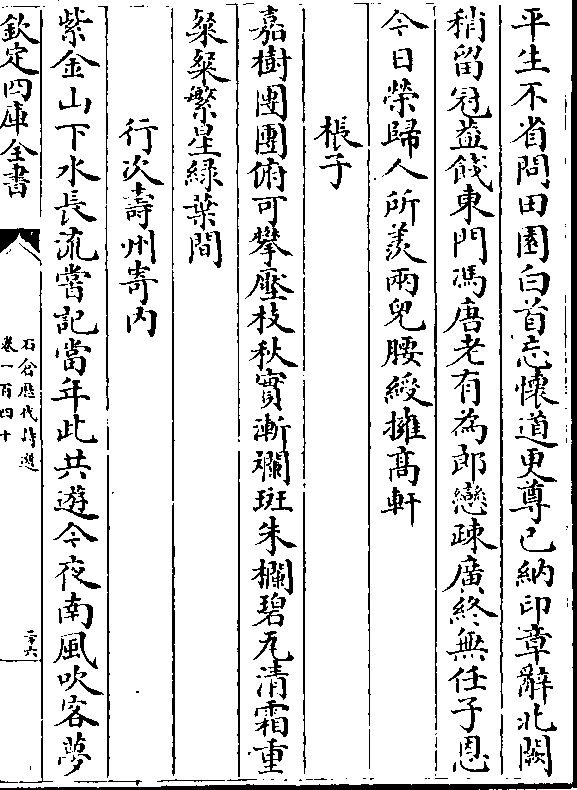 平生不省問田園白首忘懷道更尊已納印章辭北闕
稍留冠盖餞東門馮唐老有為郎戀疎廣終無任子恩
今日榮歸人所羨兩兒腰綬擁髙軒
棖子
嘉樹團團俯可攀壓枝秋實漸斕斑朱欄碧瓦清霜重
粲粲繁星緑葉間
行次壽州寄内
紫金山下水長流嘗記當年此共遊今夜南風吹客夢
欽定四庫全書
石倉歴代詩選
卷一百四十
二十六